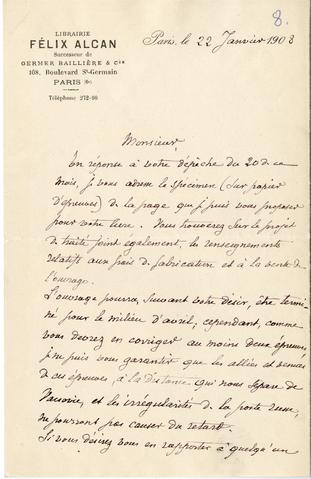 8.
LIBRAIRIE
FÉLIX ALCAN
Successeur de
GERMER BAILLIÈRE & Cie
108, Boulevard St-Germain
PARIS (6e)
Téléphone 272-00
Paris, le 22 Janvier 1908
Monsieur,
En réponse à votre dépêche du 20 de ce
mois, je vous adresse le spécimen (sur papier
d'épreuves) de la page que je puis vous proposer
pour votre livre. Vous trouverez sur le projet
de traité joint également, les renseignements
relatifs aux frais de fabrication et à la vente de
l'ouvrage.
L'ouvrage pourra, suivant votre désir, être termi
né pour le milieu d'avril, cependant, comme
vous devrez en corriger au moins deux épreuves,
je ne puis vous garantir que les allées et venues
de ces épreuves, à la distance qui nous sépare de
Varsovie, et les irrégularités de la poste russe,
ne pourront pas causer du retard.
Si vous désirez vous en rapporter à quelqu'un